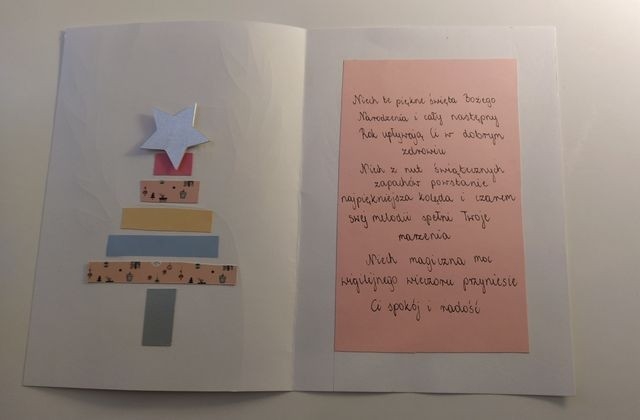 Niech te piękne święta Bożego
Narodzenia i cały następny
Rok upływają Ci w dobrym
zdrowiu
Niech z nut świątecznych
zapachów powstanie
najpiękniejsza kolęda i czarem
swej melodii spełni Twoje
marzenia
Niech magiczna moc
wigilijnego wieczoru przyniesie
Ci spokój i radość